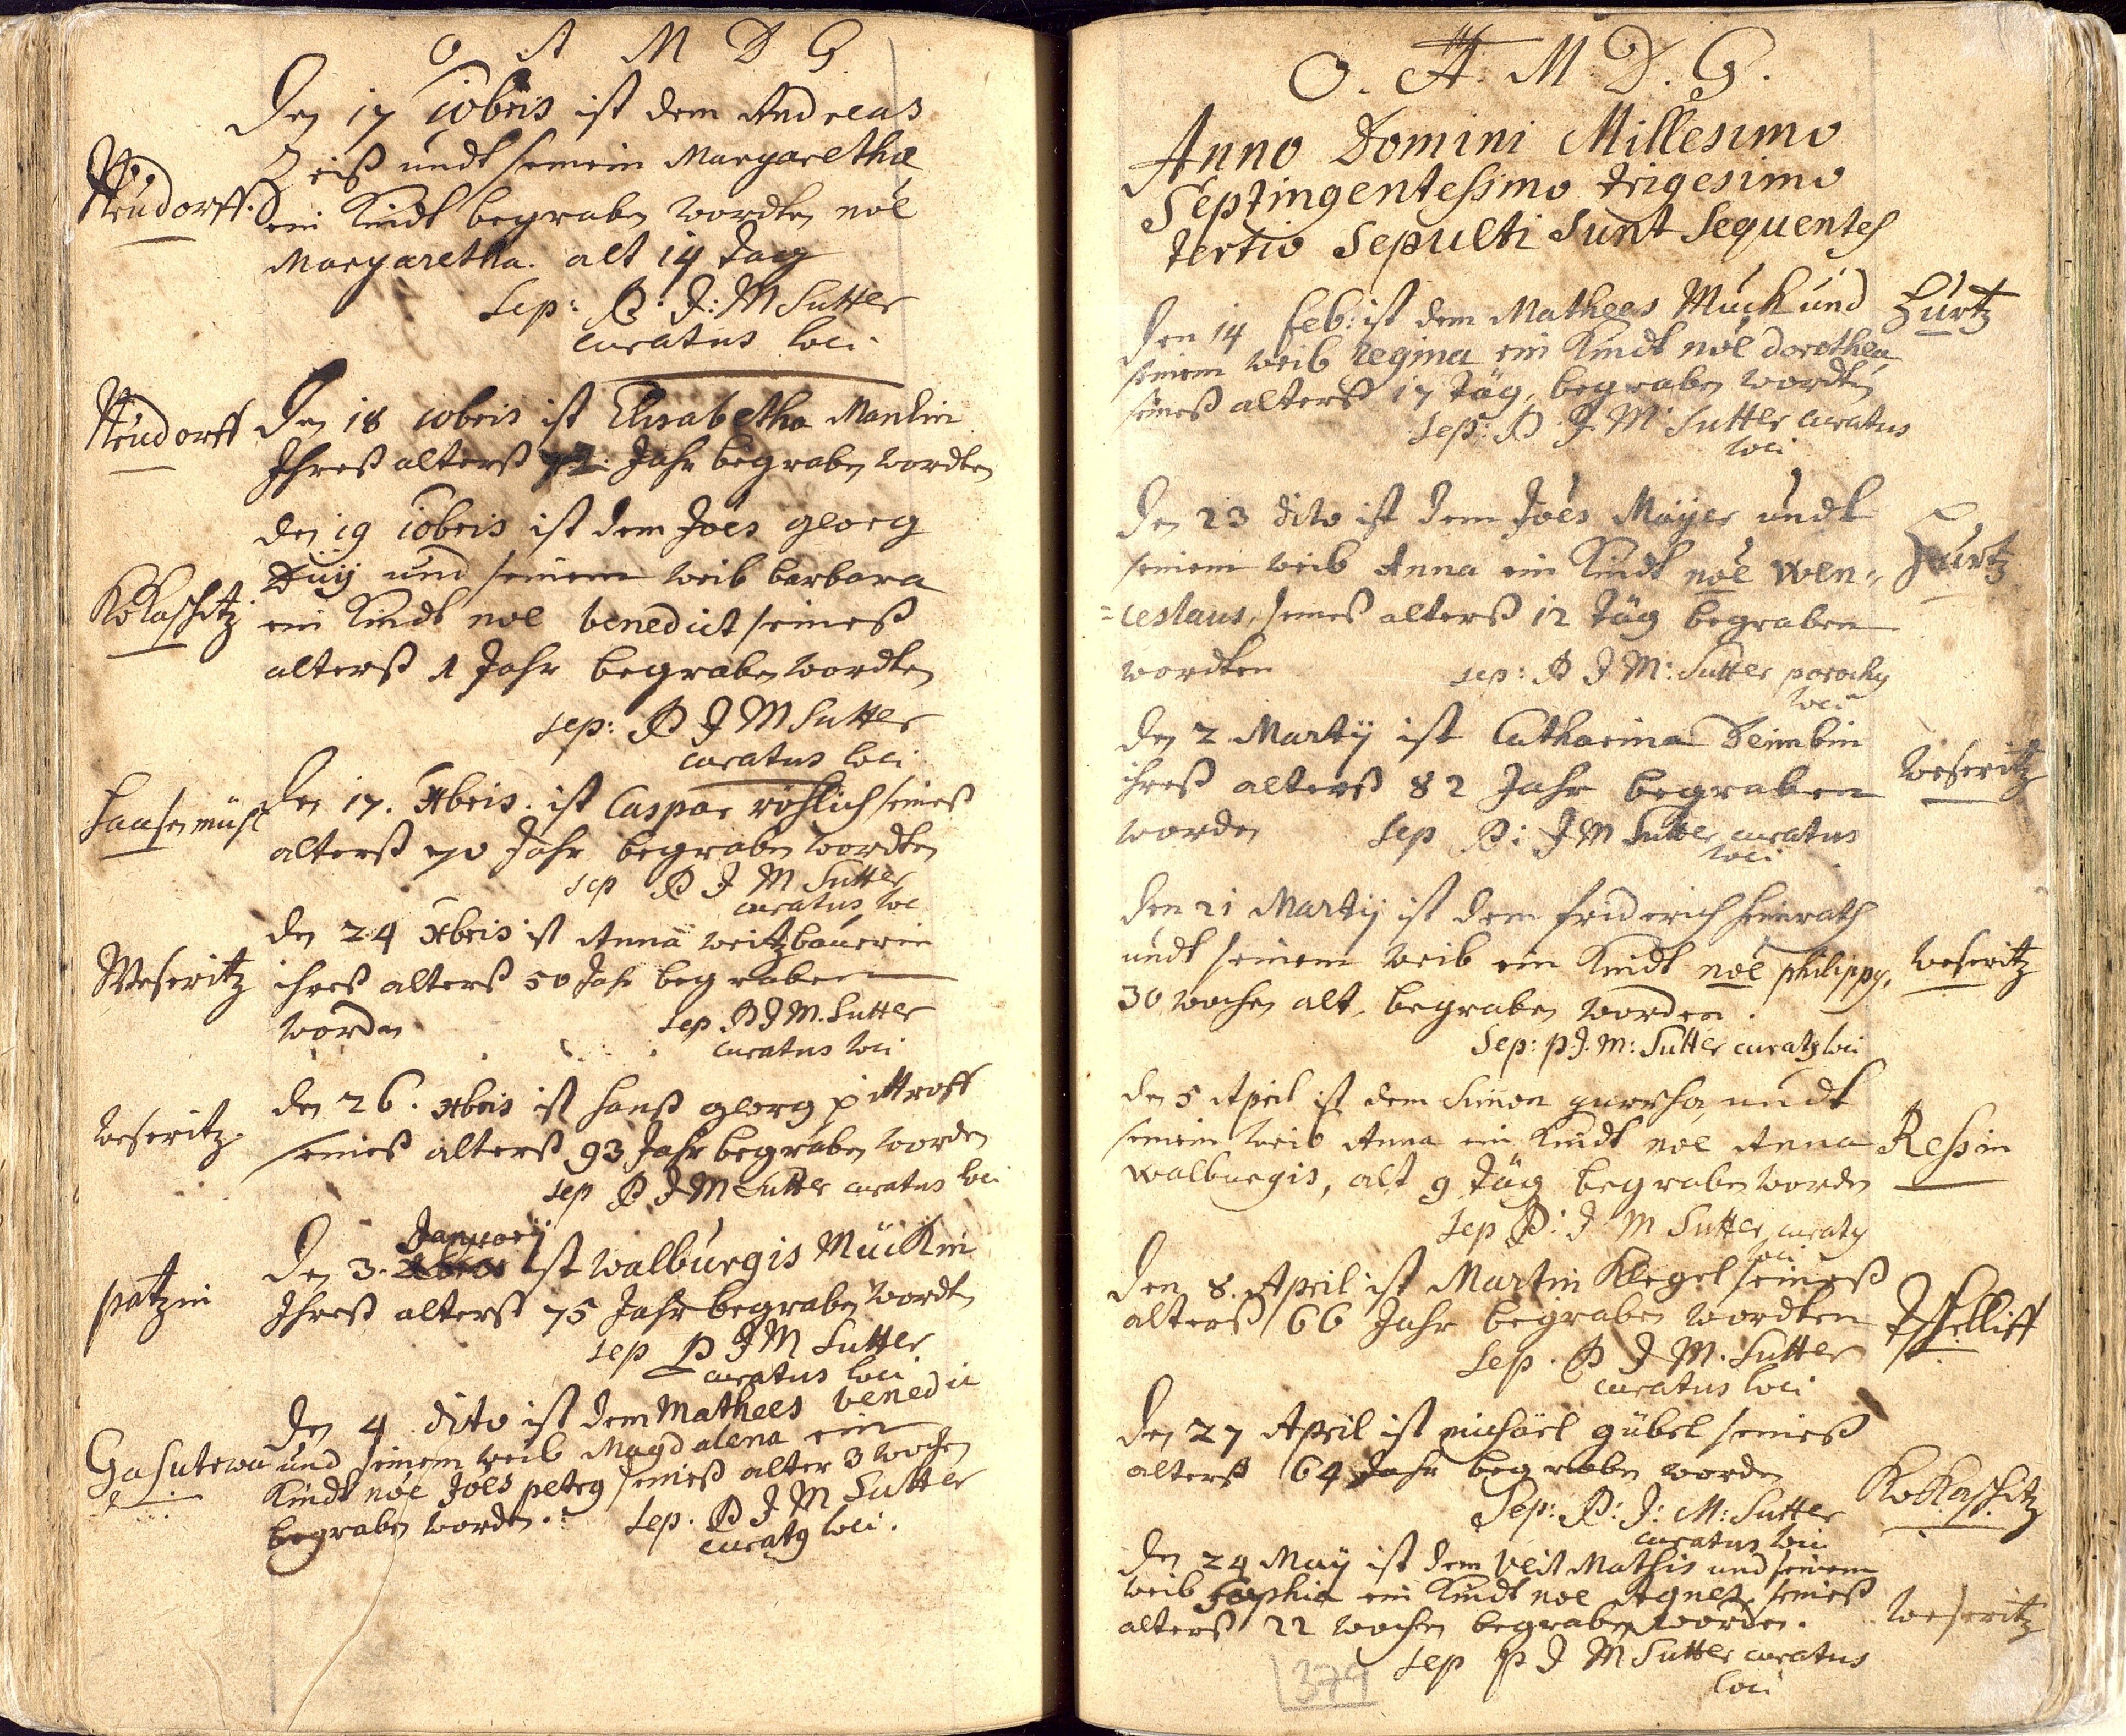 O A M D G
Den 17 10bris ist dem Andreas
Zeiß undt seinem Margaretha
Neudorff. ein Kindt begraben wordten noe
Margaretha. alt 14 tag
Sep: P: J: M Sutter
curatus loci.
Neudorff Den 18 10bris ist Elisabetha
Ihreß alterß Jahr begraben wordten
den 19 10bris ist dem Joes georg
und seinem weib barbara
Kokaschitz ein Kindt noe benedict seineß
alterß 1 Jahr begraben wordten
sep: P J M Sutter
curatus loci
Haasenmühl Den 17. Xbris. ist Caspar röhlich seineß
alterß 70 Jahr begraben wordten
sep P J M Sutter
curatus loc
den 24 Xbris ist Anna weitzbauerin
Weseritz ihreß alterß 50 Jahr begraben
worden sep P J M. Sutter
curatus loci
den 26. Xbris ist Hanß georg pittroff
weseritz. seineß alterß 93 Jahr begraben worden
sep P J M Sutter curatus loci
Januarij
Den 3. ist walburgis Mückin
patzin Ihreß alterß 75 Jahr begraben wordten
sep P J M Sutter
curatus loci
den 4 dito ist dem Mathees benedic
und seinem weib Magdalena ein
Kindt noe Joes petrg seineß alter 3 wochen
begraben worden. Sep. P J M Sutter
curatg loci.
O. A. M. D. G.
Anno Domini Millesimo
Septingentesimo trigesimo
tertio Sepulti Sunt Sequentes
Den 14 Feb: ist dem Mathees Muck und Hurtz
seinem weib Regina ein Kindt noe dorothea
seineß alterß 17 täg, begraben wordten
Sep: P. J. M Sutter curatus
loci
Den 23 dito ist dem Joes Mayer undt
seinem weib Anna ein Kindt noe Wen= Hurtz
=ceslaus, seineß alterß 12 täg begraben
wordten sep: P J M: Sutter parochg
loci
den 2 Martij ist Catharina
ihreß alterß 82 Jahr begraben weseritz
worden Sep P: J M Sutter curatus
loci
den 21 Martij ist dem friderich heinrath
undt seinem weib ein Kindt noe philippg, weseritz
30 wochen alt, begraben worden.
Sep: P. J. M: Sutter curatg loci
den 5 April ist dem Simon undt
seinem weib Anna ein Kindt noe Anna Ressin
walburgis, alt 9 täg begraben worden
Sep P: J M Sutter curatg
loci
Den 8. April ist Martin Klegel seineß
alterß 66 Jahr begraben wordten
Sep. P J M. Sutter
curatus loci
Den 27 April ist michäel gübel seineß
alterß 64 Jahr begraben worden Kokaschitz
Sep: P: J: M: Sutter
curatus loci
den 24 May ist dem Veit Mathis und seinem
weib Sophia ein Kindt noe Agnes seineß
alterß 22 wochen begraben worden. weseritz
sep P J M Sutter curatus
loci
379